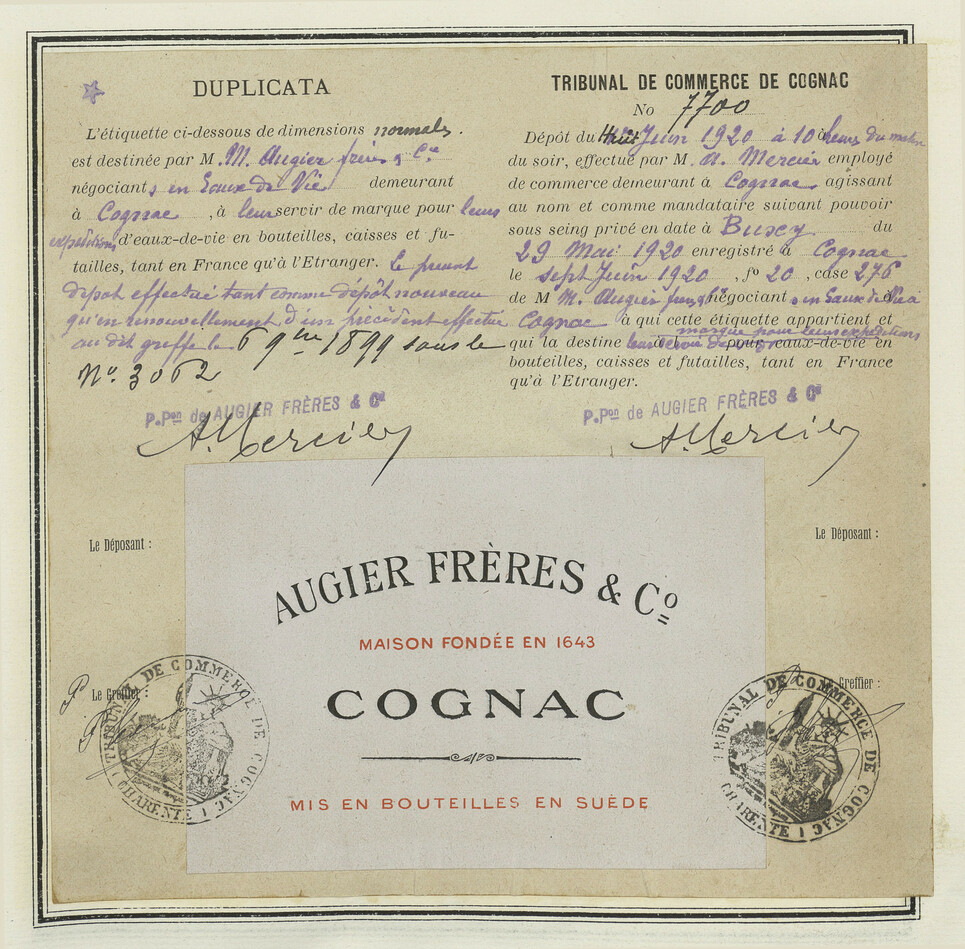 DUPLICATA
L'étiquette ci-dessous de dimensions normales.
est destinée par M. M. Augier frères & Cie
négociants en Eaux de Vie demeurant
à Cognac, à leur servir de marque pour leurs
expéditions d'eaux-de-vie en bouteilles, caisses et fu-
tailles, tant en France qu'à l'Etranger. Le présent
dépot effectué tant comme dépôt nouveau
qu'en renouvellement d'un précédent effectué
au dit greffe le 6 9bre 1899 sous le
No. 3062
P.Pon de AUGIER FRÈRES & Cie
A. Mercier
Le Déposant :
Le Greffier :
TRIBUNAL DE COMMERCE DE COGNAC
No 7700
Dépôt du Huit Juin 1920 à 10 heures du matin
du soir, effectué par M. A. Mercier employé
de commerce demeurant à Cognac, agissant
au nom et comme mandataire suivant pouvoir
sous seing privé en date à du
29 Mai 1920 enregistré à Cognac
le sept Juin 1920, fo 20, case 276
de M M. Augier négociants en Eaux de Vie à
Cognac à qui cette étiquette appartient et
marque pour leurs expéditions
qui la destine à pour eaux-de-vie en
bouteilles, caisses et futailles, tant en France
qu'à l'Etranger.
P.Pon de AUGIER FRÈRES & Cie
A. Mercier
Le Déposant :
Le Greffier :
AUGIER FRÈRES & Co
MAISON FONDÉE EN 1643
COGNAC
MIS EN BOUTEILLES EN SUÈDE
TRIBUNAL DE COMMERCE DE COGNAC
( CHARENTE )
TRIBUNAL DE COMMERCE DE COGNAC
( CHARENTE )